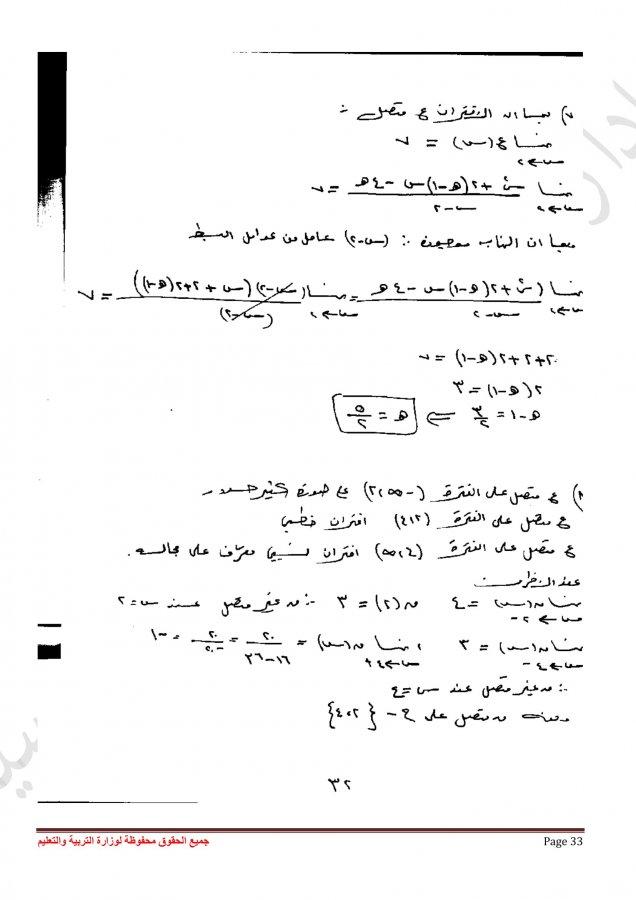 ٧) بما ان الاقتران ع متصل ∴
نهــا ع(س) = ٧
س←٢
نهــا س٢ + ٢(هـ-١)س - ٤هـ = ٧
س←٢ س-٢
وبما ان النهاية موجودة ∴ (س-٢) عامل من عوامل البسط
نهــا (س٢ + ٢(هـ-١)س - ٤هـ = نهــا (س-٢)(س+٢+٢(هـ-١)) = ٧
س←٢ س-٢ س←٢ (س-٢)
٢+٢+٢(هـ-١) = ٧
٢(هـ-١) = ٣
هـ-١ = ٣/٢ ⇐ هـ = ٥/٢
٨) ع متصل على الفترة (-∞،٢) على صورة كثير حدود
ع متصل على الفترة (٤،٢) اقتران خطي
ع متصل على الفترة (∞،٤) اقتران نسبي معرّف على مجاله.
عند
نهــا ق(س) = ٤ ق(٢) = ٣ ∴ ق غير متصل عند س=٢
س←٢-
نهــا ق(س) = ٣ ، نهــا ق(س) = ٢٠/١٦-٣٦ = ٢٠/-٢٠ = -١
س←٤- س←٤+
∴ ق غير متصل عند س=٤
ومنه ق متصل على ح - {٤،٢}
٣٢
جميع الحقوق محفوظة لوزارة التربية والتعليم Page 33